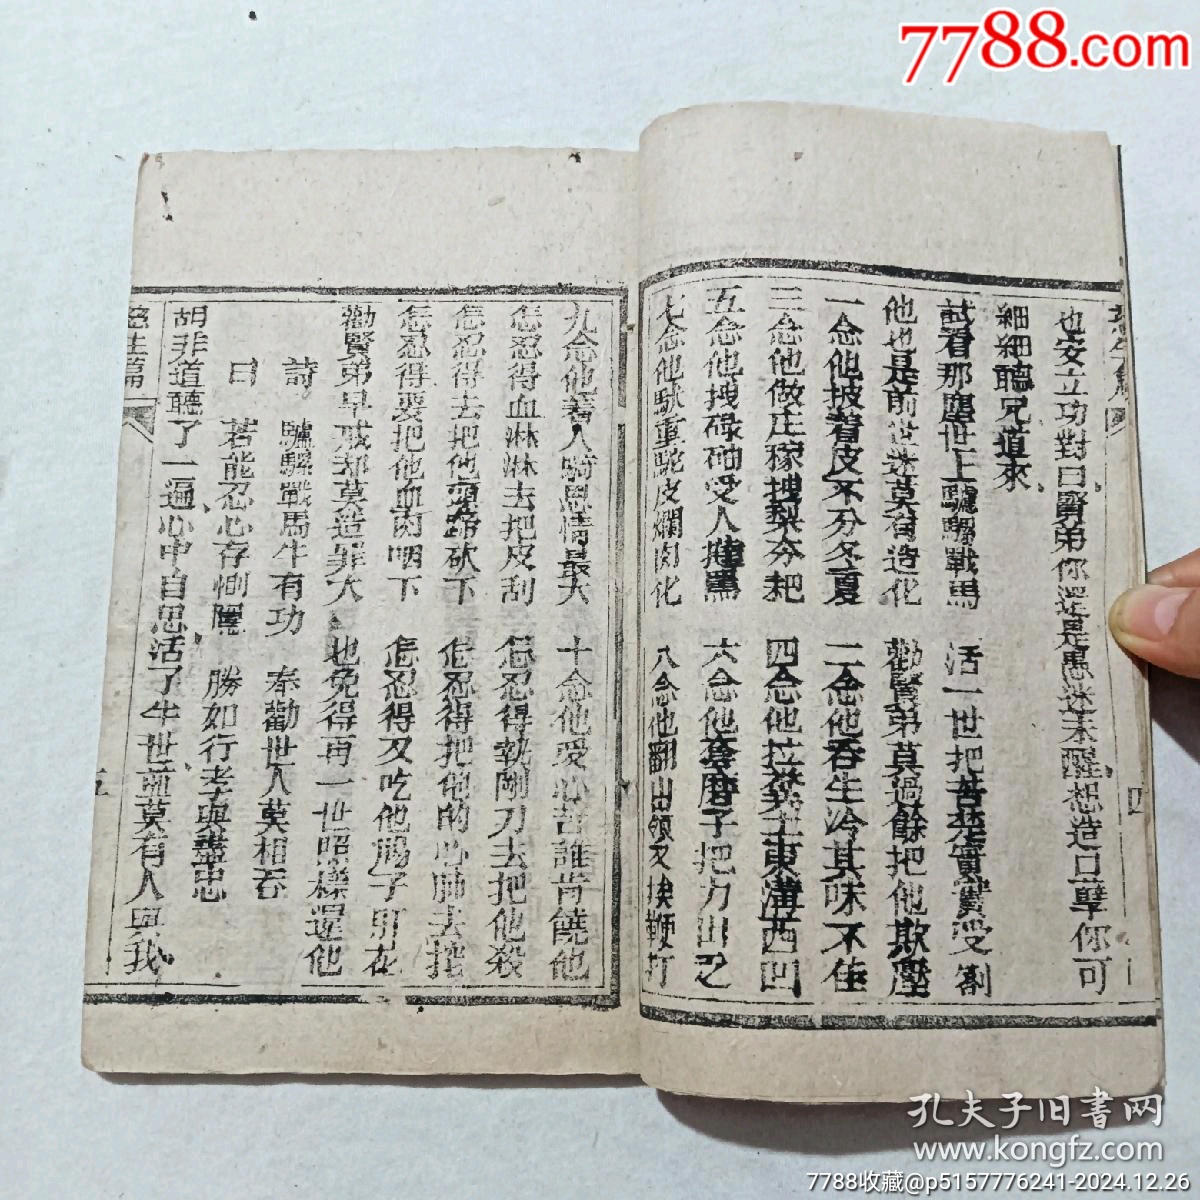 7788.com
也安立功對曰賢弟你還是愚迷未醒想造口孽你可
細細聽兄道來
試看那塵世上驢騾戰馬 活一世把苦楚實實受剳
他也是前世迷莫有造化 勸賢弟莫過餘把他欺壓
一念他披着皮不分冬夏 二念他吞生冷其味不佳
三念他做庄稼拽犁夯耙 四念他拉糞土東溝西凹
五念他拽碌砘受人 罵 六念他套磨子把力出乏
七念他馱重駝皮爛肉化 八念他翻山領又挨鞭打
九念他着人騎恩情最大 十念他受心苦誰肯饒他
怎忍得血淋淋去把皮刮 怎忍得執剛刀去把他殺
怎忍得去把他頭蹄砍下 怎忍得把他的心肺去挖
怎忍得要把他血肉咽下 怎忍得又吃他腸子肚花
勸賢弟早戒却莫造罪大 也免得再一世照樣還他
詩 驢騾戰馬牛有功 奉勸世人莫相吞
曰 若能忍心存惻隱 勝如行孝與盡忠
胡非道聽了一遍心中自思活了半世並莫有人與我
五
孔夫子旧書网
www.kongfz.com
7788收藏@p5157776241-2024.12.26